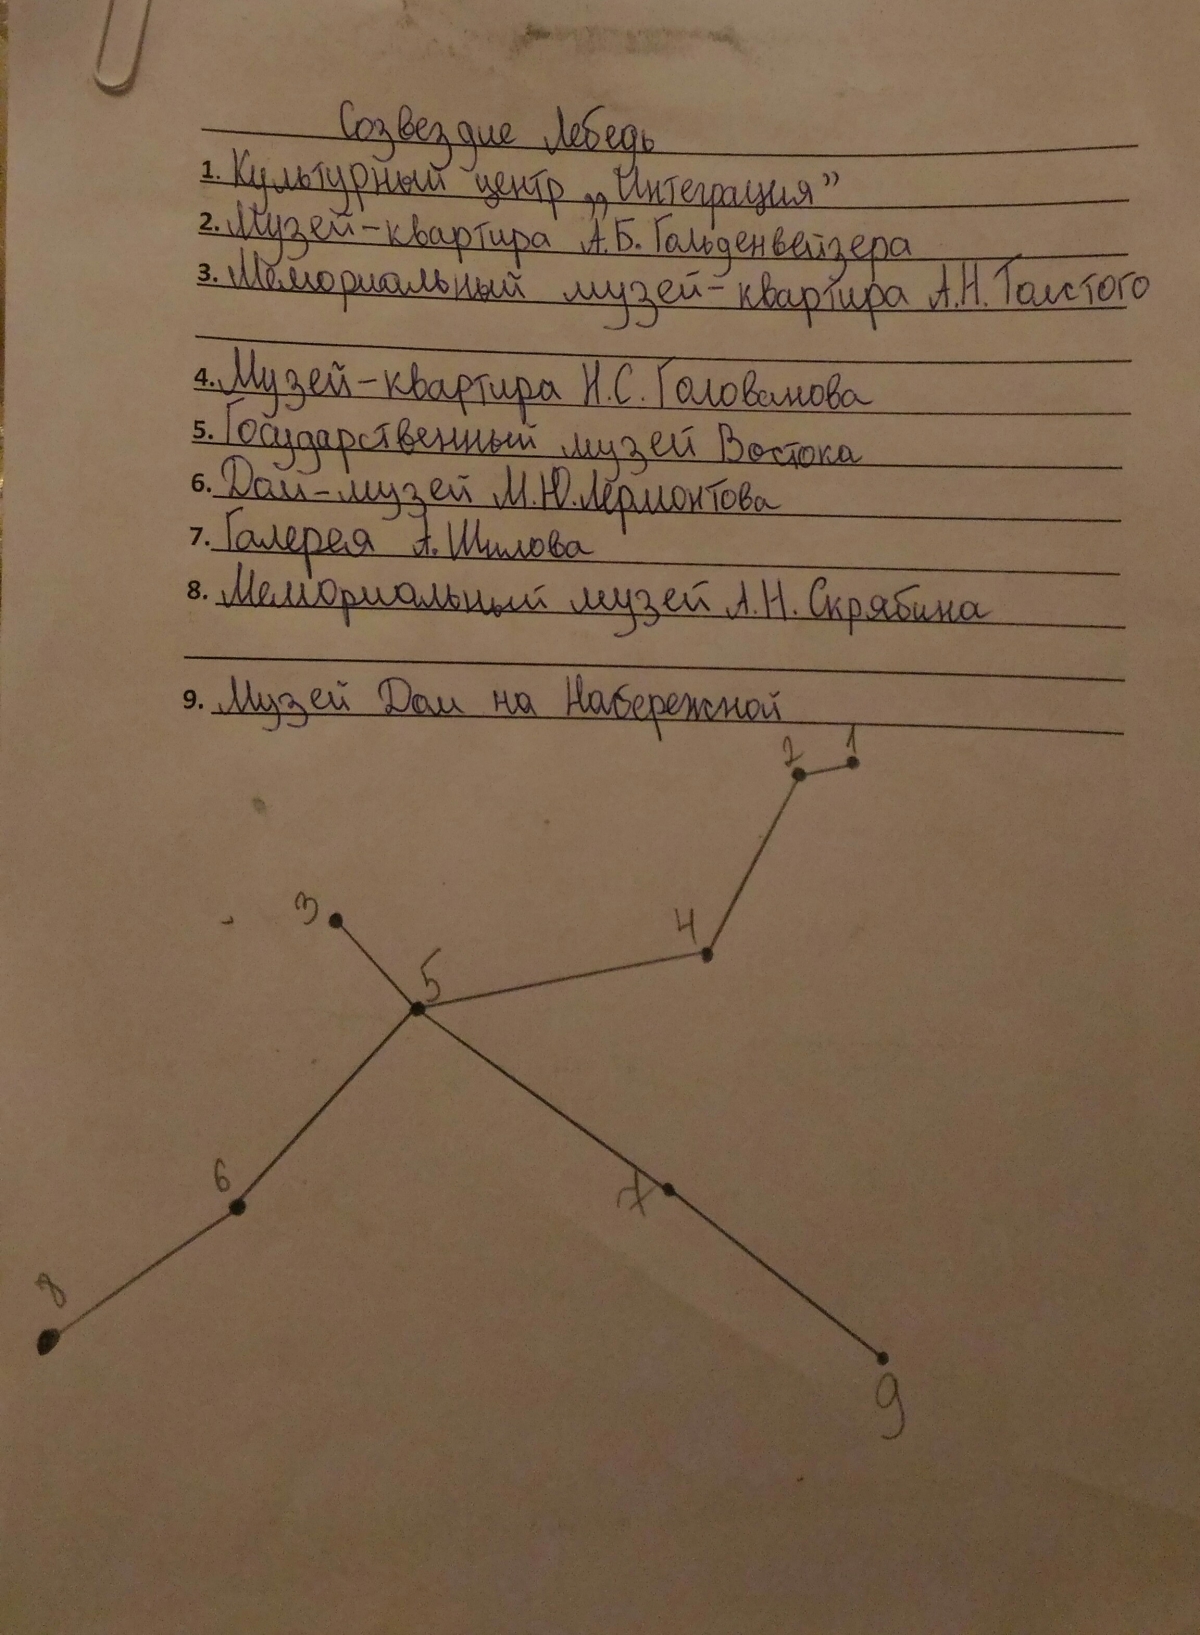 Созвездие Лебедь
1. Культурный центр „Интеграция”
2. Музей-квартира А.Б. Гольденвейзера
3. Мемориальный музей-квартира А.Н. Толстого
4. Музей-квартира Н.С. Голованова
5. Государственный музей Востока
6. Дом-музей М.Ю. Лермонтова
7. Галерея А. Шилова
8. Мемориальный музей А.Н. Скрябина
9. Музей Дом на Набережной
2 1
3
4
5
6
7
8
9